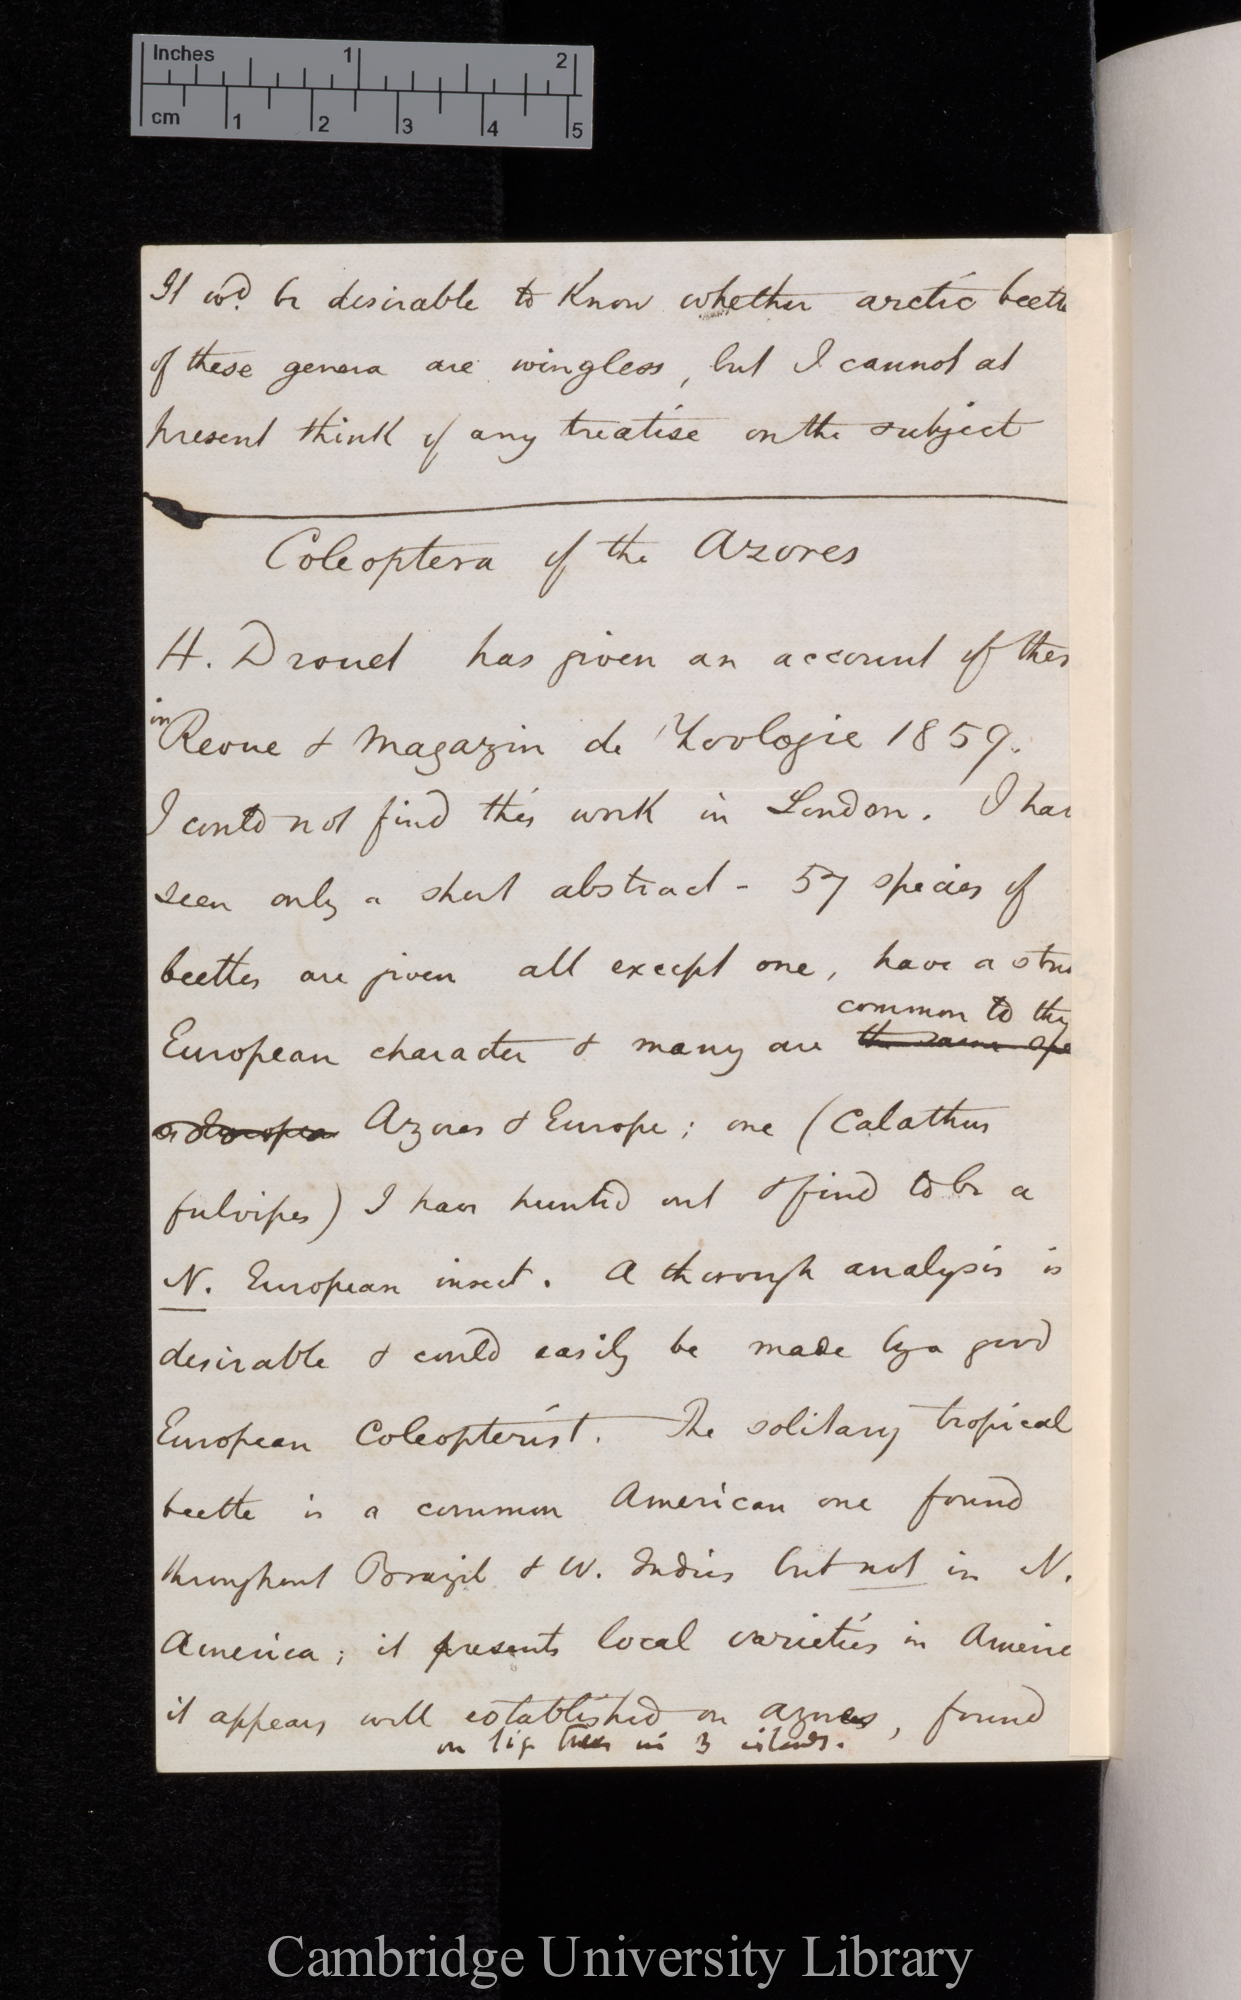 Inches 1 2
cm 1 2 3 4 5
It wd. be desirable to know whether arctic beetle
of these genera are wingless, but I cannot at
present think of any treatise on the subject
Coleoptera of the Azores
H. Drouet has given an account of thes
in
Revue & Magazin de Zoologie 1859.
I could not find this work in London. I hav
seen only a short abstract - 57 species of
beetles are given all except one, have a stri
common to the
European character & many are the same spe
Azores & Europe; one (Calathus
fulvipes) I have hunted out & find to be a
N. European insect. A thorough analysis is
desirable & could easily be made by a good
European Coleopterist. The solitary tropical
beetle is a common American one found
throughout Brazil & W. Indies but not in N.
America; it presents local varieties in Americ
it appears well established on Azores, found
on fig trees in 3 islands.
Cambridge University Library